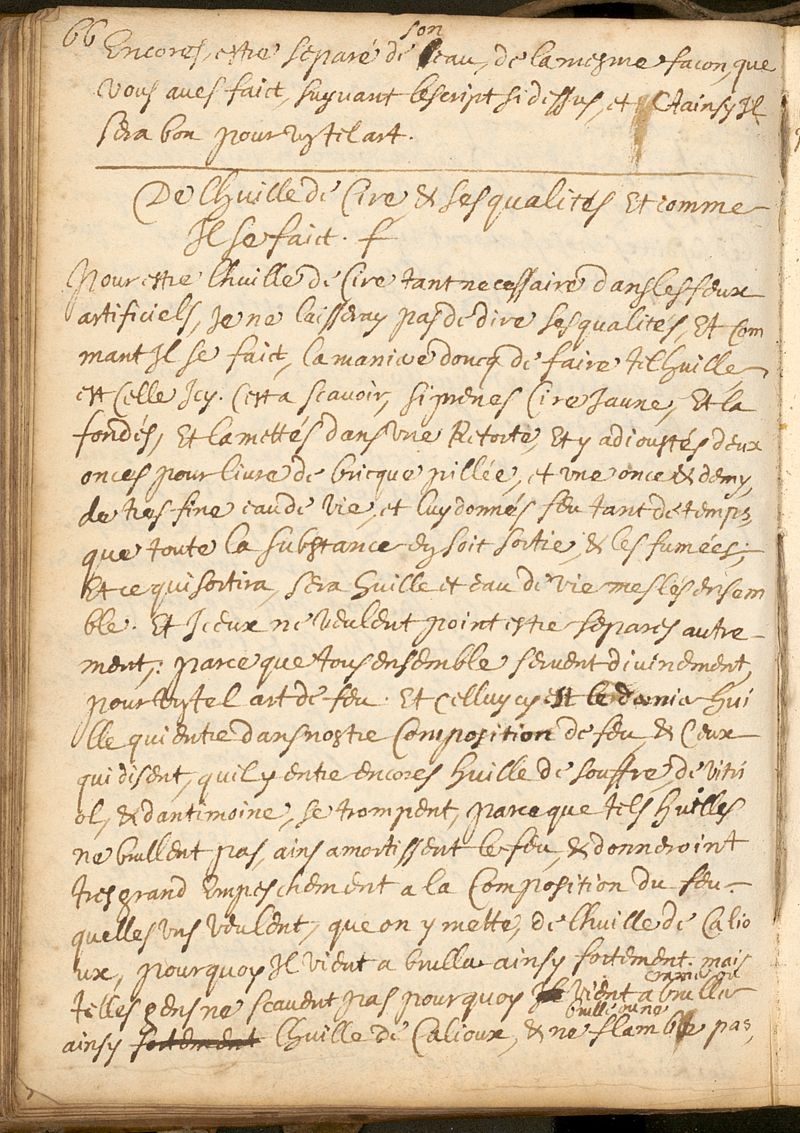 66 Encores, estre separé de son eau, de la mesme facon, que
vous aves faict, suyvant lescript si dessus, et Ainsy Il
sera bon pour ung tel art.
De lhuille de Cire & ses qualités Et comme
Il se faict.
Pour estre lhuille de Cire tant necessaire dans les feux
artificiels, Je ne laisseray pas de dire ses qualités, Et Com
mant Il se faict, la maniere doncq de faire tel huille
est Celle Icy. Cest a scavoir, si prenes Cire Jaune, Et la
fondés, Et la mettés dans une Retorte, Et y adioustés deux
onces pour livre de bricque pillée, et une once & demy,
de tres fine eau de vie, et luy donnés feu tant de temps,
que toute la substance en soit sortie, & les fumées;
Et ce qui sortira, sera huille et eau de vie meslés ensem
ble. Et Iceux ne veulent point estre separes autre-
ment, parce que tous ensemble servent divinement,
pour ung tel art de feu. Et Celluy cy est le dernier hui
lle qui entre dans nostre Composition de feu, & Ceux
qui disent, quil y entre encores huille de souffre, de vitri
ol, & dantimoine, se trompent, parce que tels huilles
ne brullent pas, ains amortissent le feu, & donneroint
tres grand Empeschement a la Composition du feu.
quelles uns veulent, que on y mette, de lhuille de Calio
ux, pourquoy Il vient a bruller ainsy fortement. mais
telles gens ne scavent pas pourquoy vient a bruller
ainsy fortement lhuille de Calioux, & ne flambe pas,